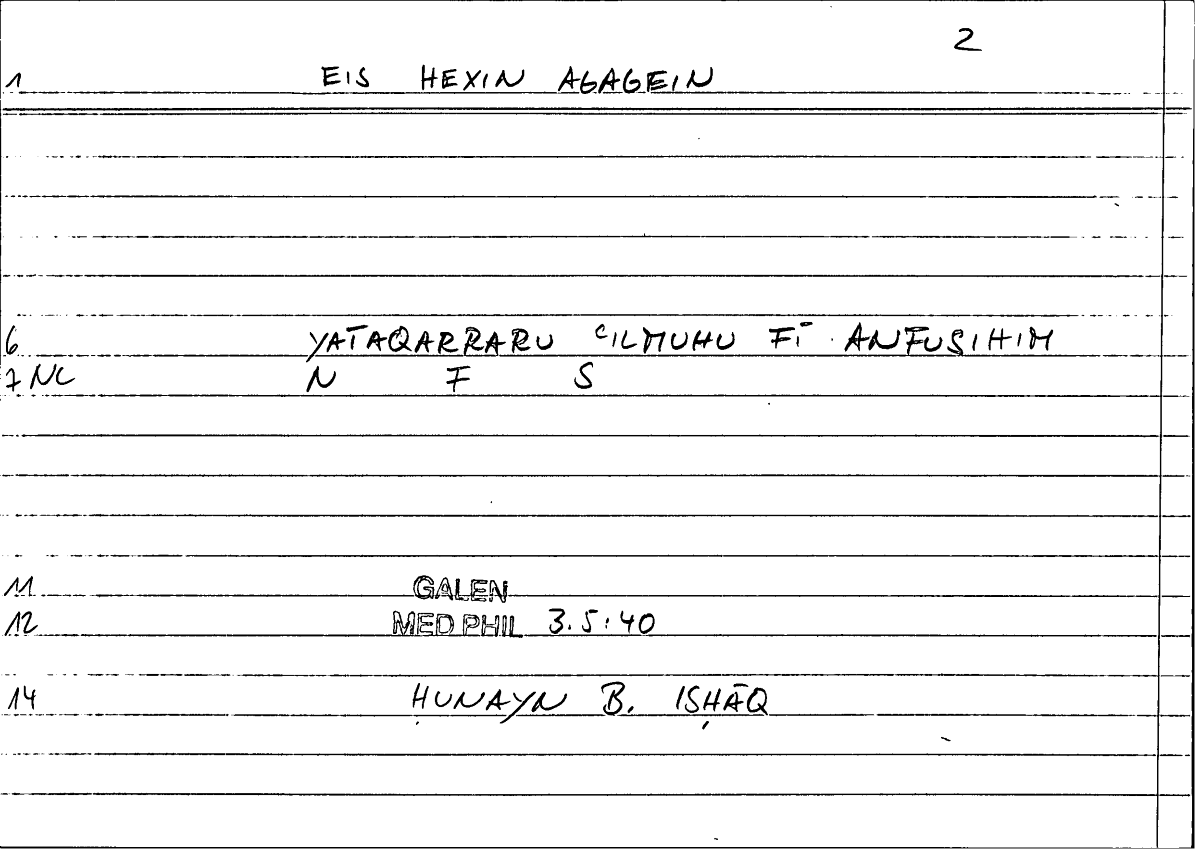 2
1 EIS HEXIN AGAGEIN
6 YATAQARRARU ʿILMUHU FĪ ANFUSIHIM
7 NC N F S
11 GALEN
12 MED PHIL 3.5:40
14 ḤUNAYN B. ISḤĀQ